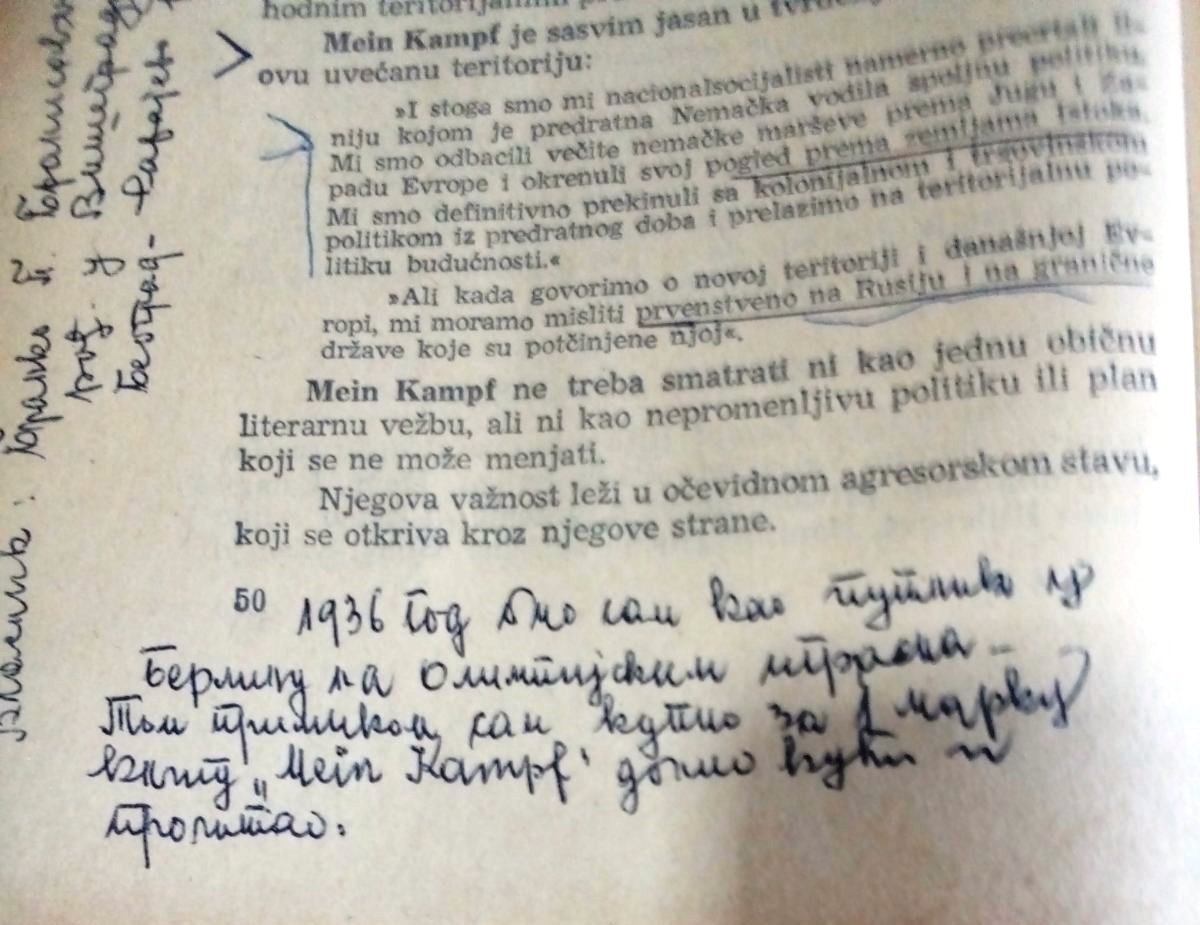 hodnim teritorijalnim
Mein Kampf je sasvim jasan u
ovu uvećanu teritoriju:
»I stoga smo mi nacionalsocijalisti namerno precrtali li-
niju kojom je predratna Nemačka vodila spoljnu politiku.
Mi smo odbacili večite nemačke marševe prema Jugu i Za-
padu Evrope i okrenuli svoj pogled prema zemljama Istoka.
Mi smo definitivno prekinuli sa kolonijalnom i trgovinskom
politikom iz predratnog doba i prelazimo na teritorijalnu po-
litiku budućnosti.«
»Ali kada govorimo o novoj teritoriji i današnjoj Ev-
ropi, mi moramo misliti prvenstveno na Rusiju i na granične
države koje su potčinjene njoj«.
Mein Kampf ne treba smatrati ni kao jednu običnu
literarnu vežbu, ali ni kao nepromenljivu politiku ili plan
koji se ne može menjati.
Njegova važnost leži u očevidnom agresorskom stavu,
koji se otkriva kroz njegove strane.
50
1936 год био сам као путник у
Берлину на олимпијским играма –
Том приликом сам купио за 1 марку
књигу „Mein Kampf' дошао кући и
прочитао.
Власник:
рођ. у Вишеград
Београд - Сарајево